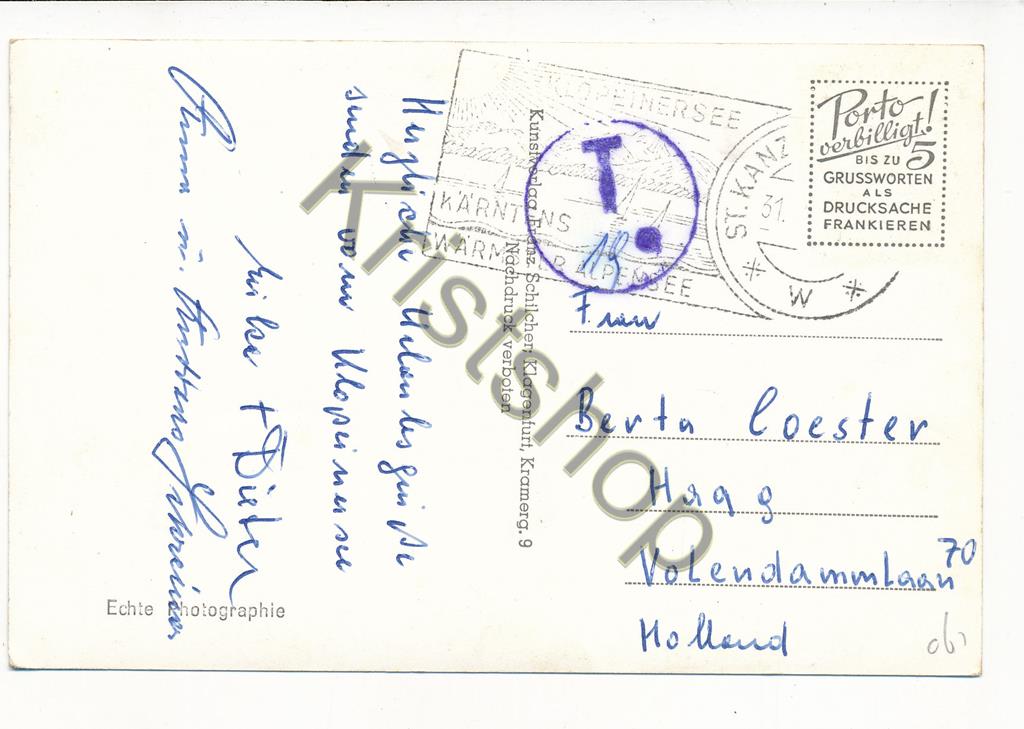 Herzliche Urlaubsgrüße
senden vom Klopeinersee
Dieter
KLOPEINERSEE
KÄRNTENS
WÄRMSTER ALPENSEE
ST. KANZ
31.
* W *
T.
Porto
verbilligt!
BIS ZU 5
GRUSSWORTEN
ALS
DRUCKSACHE
FRANKIEREN
Kunstverlag Franz Schilcher, Klagenfurt, Kramerg. 9
Nachdruck verboten
Frau
Berta Coester
Haag
Volendammlaan 70
Holland
Echte Photographie
Kristshop